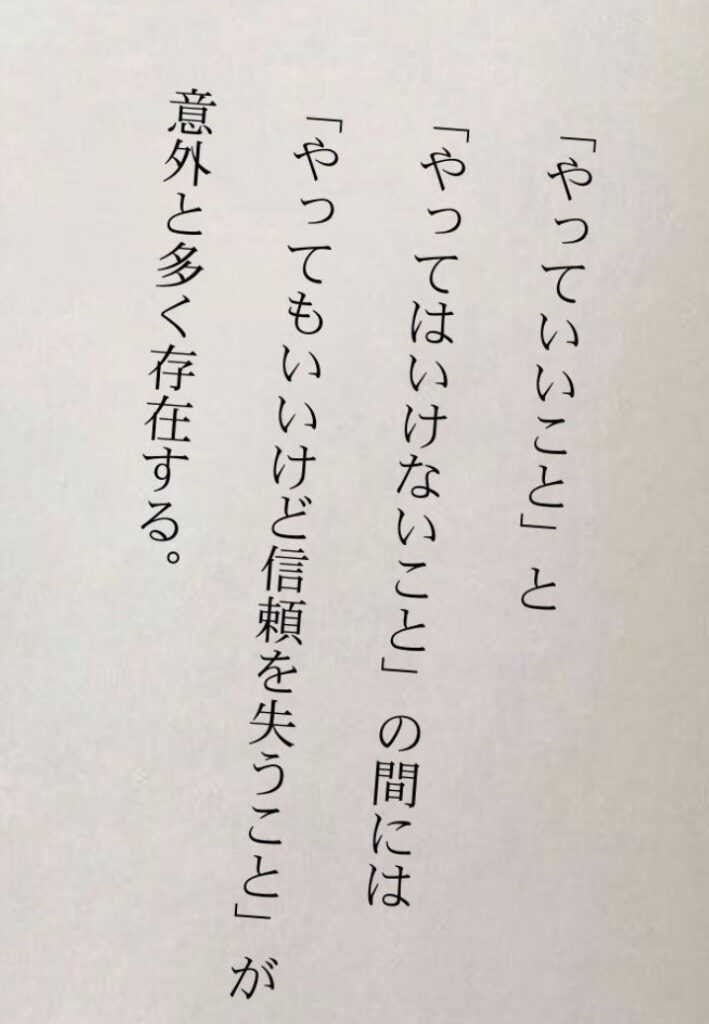 「やっていいこと」と
「やってはいけないこと」の間には
「やってもいいけど信頼を失うこと」が
意外と多く存在する。